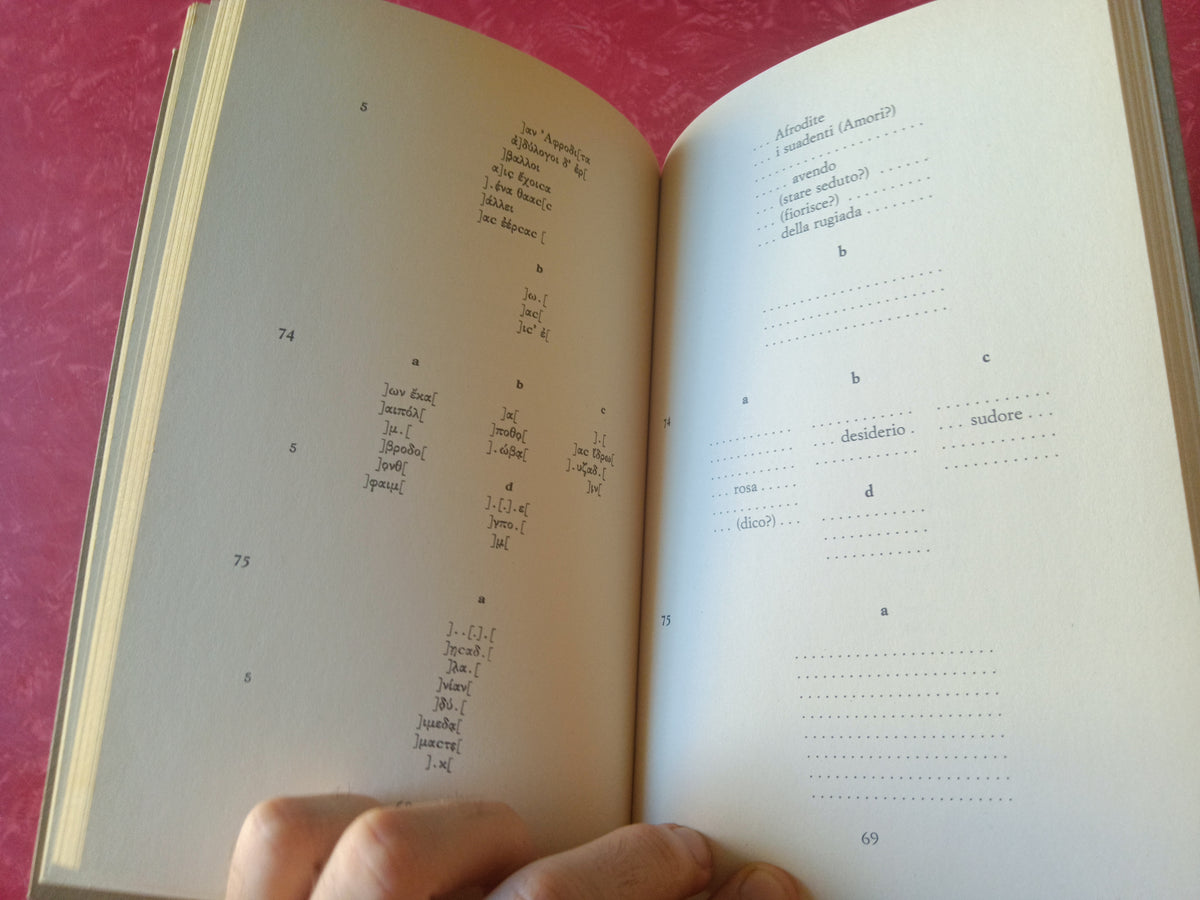 5
]αν Ἀφροδι[τα
ἀ]δύλογοι δ' ἐρ[
]βαλλοι
α]ις ἔχοιϲα
].ένα θααϲ[ϲ
]άλλει
]αϲ ἐέρϲαϲ [
b
]ω.[
]αϲ[
]ιϲ' ἐ[
74
a b c
]ων ἔκα[
]αιπόλ[
]μ.[
]βροδο[
5
]ονθ[
]φαιμ[
]α[
]ποθο[
].ώβα[
].[
]αϲ ἴδρω[
].υζαδ.[
]ιν[
d
].[.].ε[
]γπο.[
]μ[
75
a
]..[.].[
]ηϲαδ.[
]λα.[
]νίαν[
5
]δύ.[
]ιμεδα[
]μαϲτε[
].κ[
... Afrodite
... i suadenti (Amori?)
. . . . . . . . . . . . . . .
..... avendo
... (stare seduto?) ......
... (fiorisce?) ..........
... della rugiada ........
b
. . . . . . . . . . . . . . . . . . .
. . . . . . . . . . . . . . . . . . .
. . . . . . . . . . . . . . . . . . .
74
a b c
. . . . . . . . . .
. . . . . . . . . .
. . . . . . . . . .
... rosa .....
. . . . . . . . . .
... (dico?) ...
. . . . . . . . .
... desiderio .
. . . . . . . . . . .
. . . . . . . . . . . .
... sudore ...
. . . . . . . . . . . .
. . . . . . . . . . . .
d
. . . . . . . . . . .
. . . . . . . . . . .
. . . . . . . . . . .
75
a
. . . . . . . . . . . . . . . . . . . .
. . . . . . . . . . . . . . . . . . . .
. . . . . . . . . . . . . . . . . . . .
. . . . . . . . . . . . . . . . . . . .
. . . . . . . . . . . . . . . . . . . .
. . . . . . . . . . . . . . . . . . . .
. . . . . . . . . . . . . . . . . . . .
. . . . . . . . . . . . . . . . . . . .
69